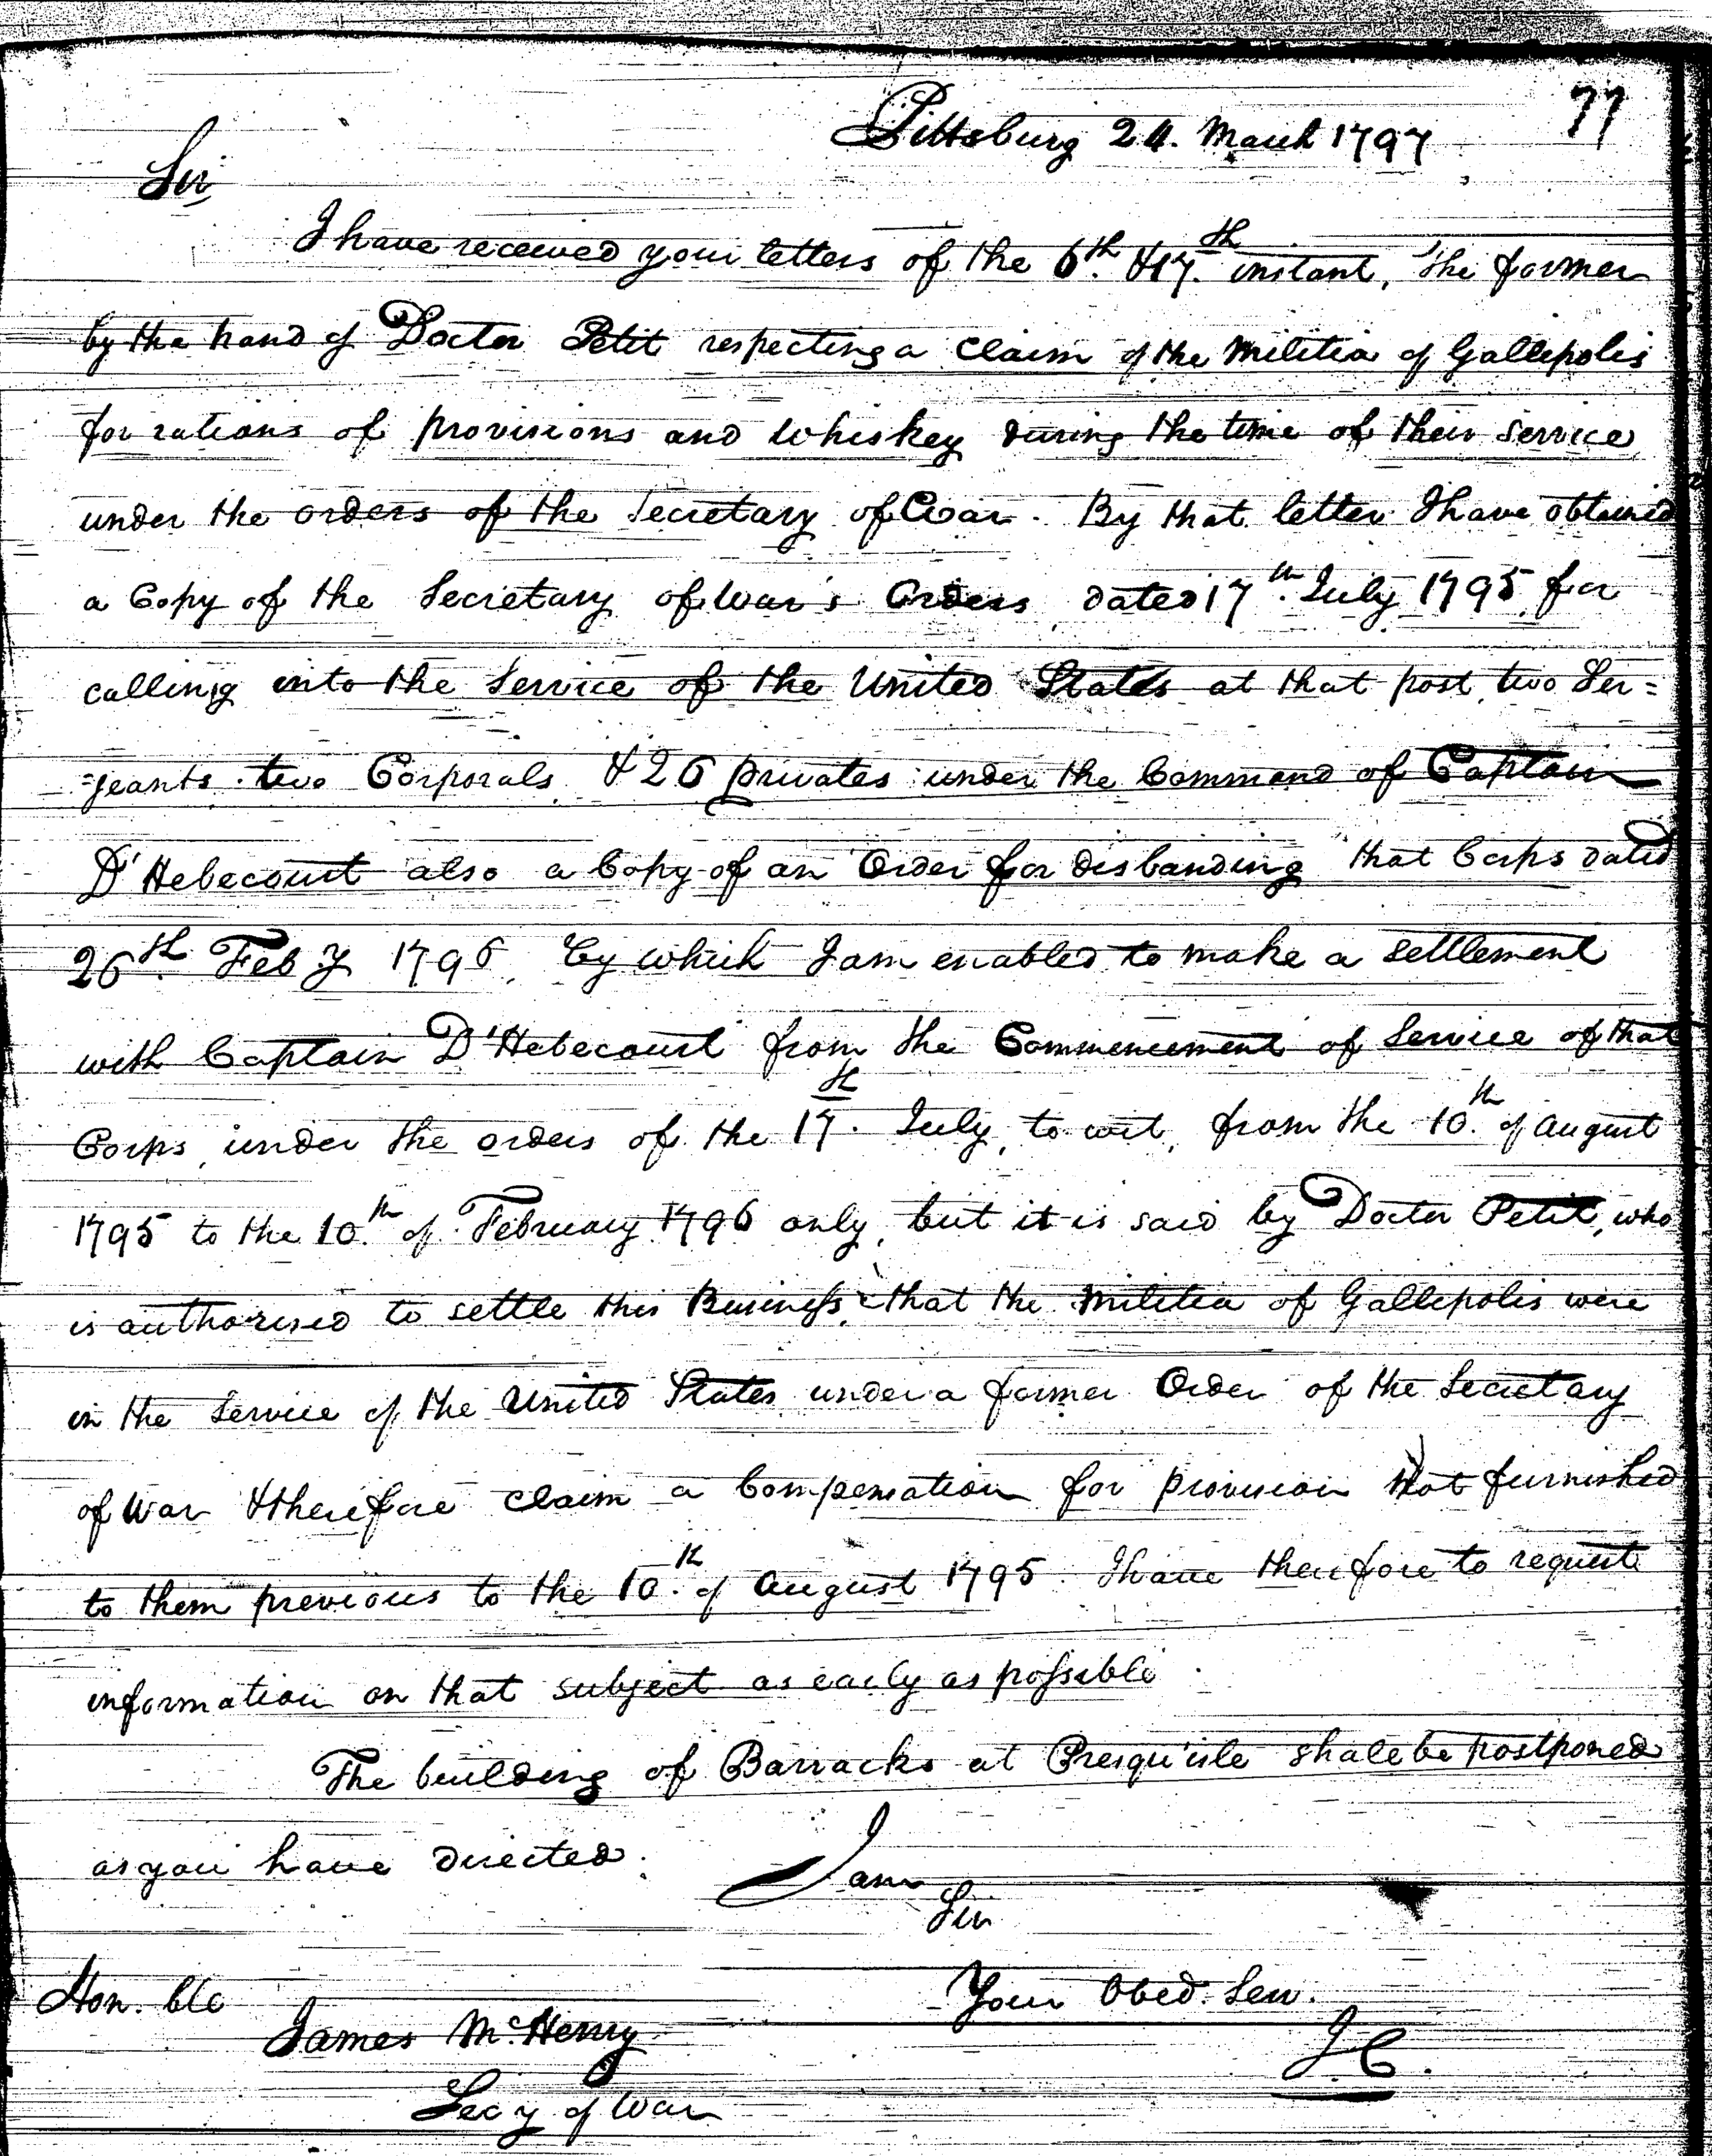 77
Pittsburg 24. March 1797
Sir,
I have received your letters of the 6th. & 17.th instant, the former
by the hand of Doctor Petit respecting a Claim of the Militia of Gallepolis
for rations of provisions and whiskey during the time of their service
under the orders of the Secretary of War. By that letter I have obtained
a Copy of the Secretary of War's Orders dated 17th. July 1795 for
calling into the Service of the United States at that post, two Ser=
=jeants two Corporals & 26 privates under the Command of Captain
D'Hebecourt also a Copy of an Order for disbanding that Corps dated
26th. Feby 1796, by which I am enabled to make a settlement
with Captain D'Hebecourt from the Commencement of Service of that
Corps, under the orders of the 17.th July, to wit, from the 10.th of August
1795 to the 10.th of February 1796 only, but it is said by Doctor Petit, who
is authorised to settle this Business, that the Militia of Gallepolis were
in the Service of the United States under a former Order of the Secretary
of War & therefore claim a Compensation for provision not furnished
to them previous to the 10.th of August 1795. I have therefore to request
information on that subject as early as possible.
The building of Barracks at Presqu'isle shall be postponed
as you have directed.
I am
Sir
Your Obed. Serv.
J.C.
Hon. ble
James McHenry
Secy of War